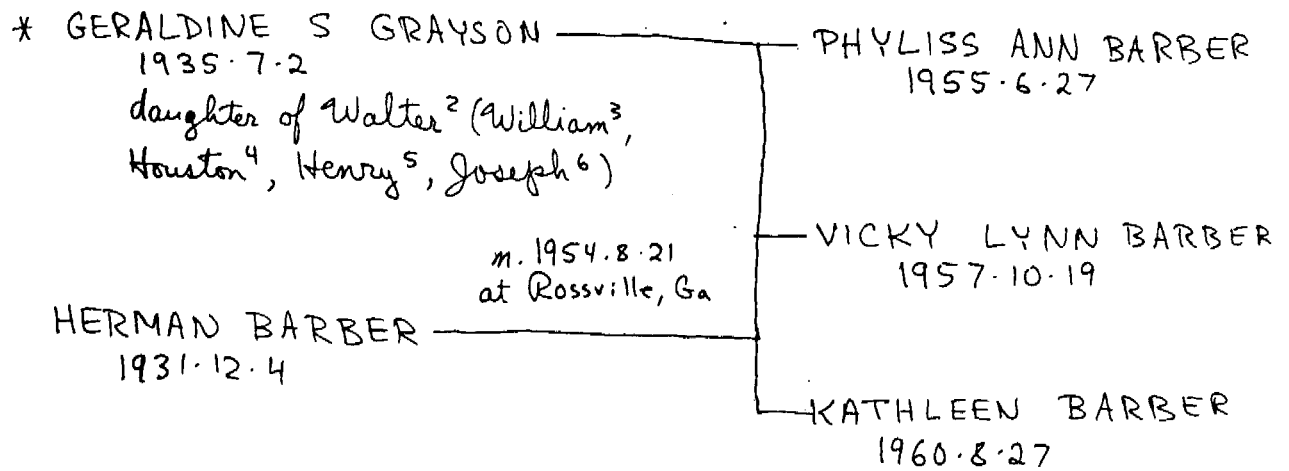 * GERALDINE S GRAYSON
1935.7.2
daughter of Walter² (William³,
Houston⁴, Henry⁵, Joseph⁶)
m. 1954.8.21
at Rossville, Ga
HERMAN BARBER
1931.12.4
PHYLISS ANN BARBER
1955.6.27
VICKY LYNN BARBER
1957.10.19
KATHLEEN BARBER
1960.8.27